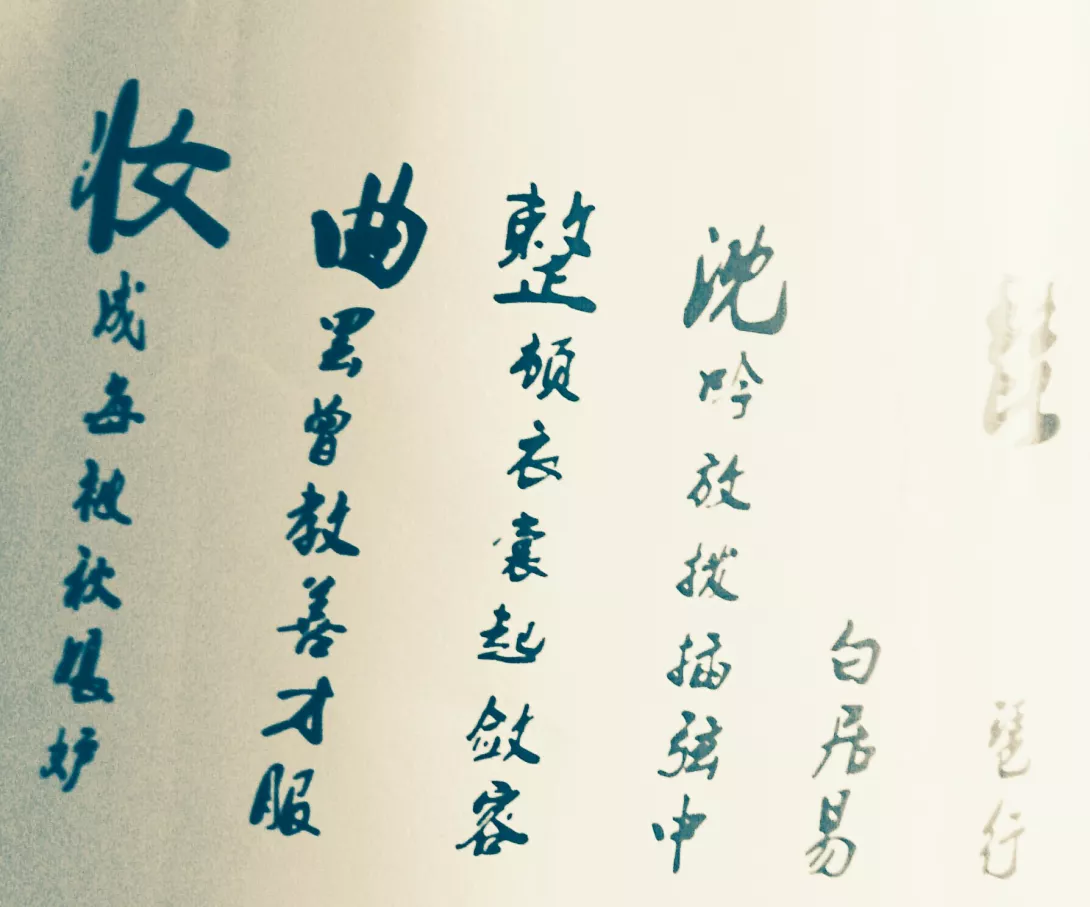 琵琶行
白居易
沈吟放拨插弦中
整顿衣裳起敛容
曲罢曾教善才服
妆成每被秋娘妒